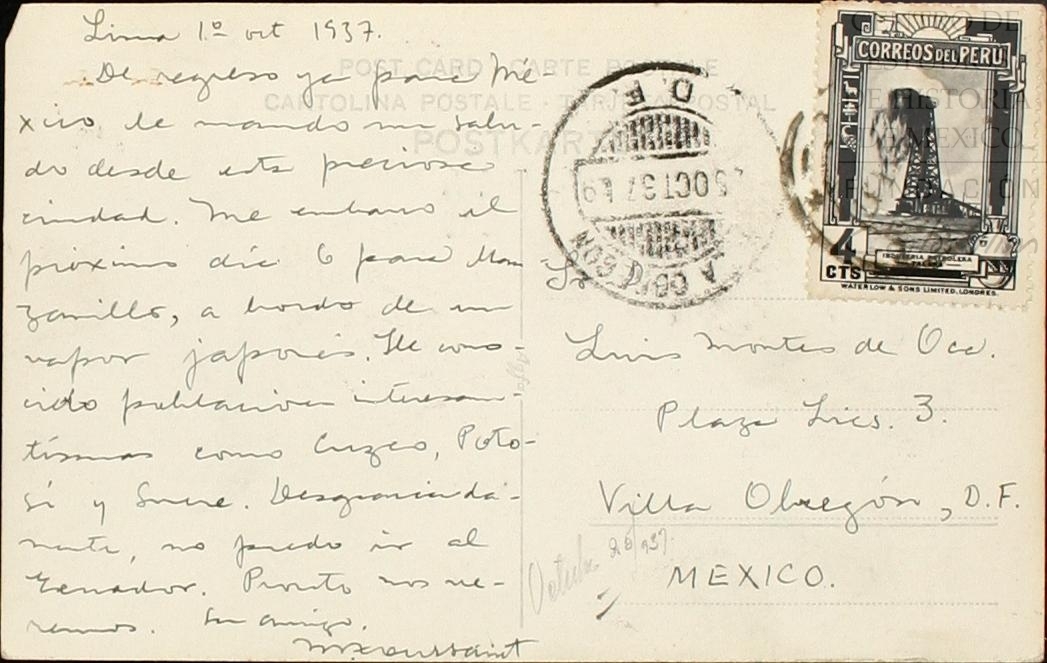 Lima 1º oct 1937.
De regreso ya para Mé-
xico le mando mi salu-
do desde esta preciosa
ciudad. Me embarco el
próximo día 6 para Man
zanillo, a bordo de un
vapor japonés. He cono-
cido poblaciones interesan-
tísimas como Cuzco, Poto-
sí y Sucre. Desgraciada-
mente, no puedo ir al
Ecuador. Pronto nos ve-
remos. Su amigo.
M Toussaint
POST CARD - CARTE POSTALE
CARTOLINA POSTALE - TARJETA POSTAL
POSTKARTE
D. F.
OCT 37
A. OBREGON
CORREOS DEL PERU
4
CTS
INDUSTRIA PETROLERA
WATERLOW & SONS LIMITED, LONDRES.
CENTRO DE
DE HISTORIA
DE MEXICO
FUNDACIÓN
Sr.
Luis Montes de Oca.
Plaza Lics. 3.
Villa Obregón, D.F.
MEXICO.
Octubre 26/937.